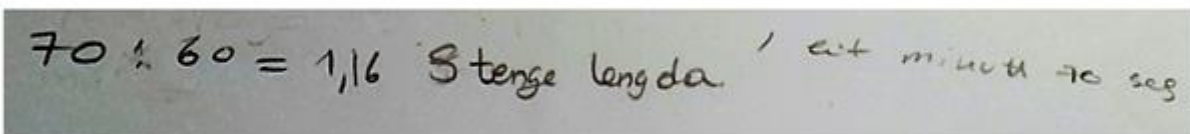 70 : 60 = 1,16 Stenge lengda / eit minutt 70 seg